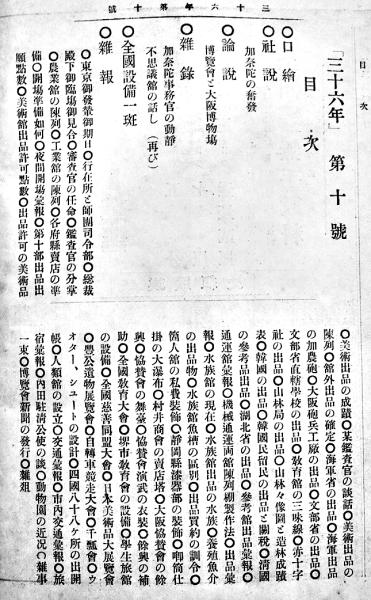 號十第年六十三
目次
「三十六年」第十號
目次
◯口繪
◯社說
加奈陀の奮發
◯論說
博覽會と大阪博物場
◯雜錄
加奈陀事務官の動靜
不思議館の話し（再び）
◯全國設備一班
◯雜報
◯東京御發輦御期日◯行在所と師團司令部◯總裁
殿下御臨場御見合◯審査官の任命◯鑑査官の分掌
◯農業館の陳列◯工業館の陳列◯各府縣賣店の準
備◯開場準備如何◯夜間開場彙報◯第十部出品出
願點數◯美術館出品許可點數◯出品許可の美術品
◯美術出品の成蹟◯某鑑査官の談話◯美術出品の
陳列◯館外出品の確定◯海軍省の出品◯海軍出品
の加農砲◯大阪砲兵工廠の出品◯文部省の出品◯
文部省直轄學校の出品◯敎育館の三味線◯赤十字
社の出品◯山林局の出品◯山林々像圖と造林成蹟
表◯韓國の出品◯韓國民俗品の出品と關稅◯淸國
の參考品出品◯湖北省の出品◯參考館出品彙報◯
通運館彙報◯機械通運兩館陳列棚製作法◯出品彙
報◯水族館の現在◯水族館出品の水族◯養殖魚介
の出品物◯水族館魚槽の區別◯出品買約の訓令◯
簡人館の私費裝飾◯靜岡縣漆器部の裝飾◯唧筒仕
掛の大瀑布◯村井商會の賣店落成◯大阪協賛會の餘
興◯協賛會の舞臺◯協賛會演武の衣裝◯餘興の補
助◯全國敎育大會◯堺市敎育會の設備◯學生旅館
の設備◯全國慈善同盟大會◯日本美術品大展覽會
◯豐公遺物展覽會◯自轉車競走大會◯千瓢會◯ウ
オター、シユートの設計◯四國八十八ケ所の出開
帳◯人類館の設立◯交通彙報◯市內交通彙報◯旅
宿彙報◯內田駐淸公使の談◯動物園の近况◯雜事
一束◯博覽會新聞の發行◯雜俎